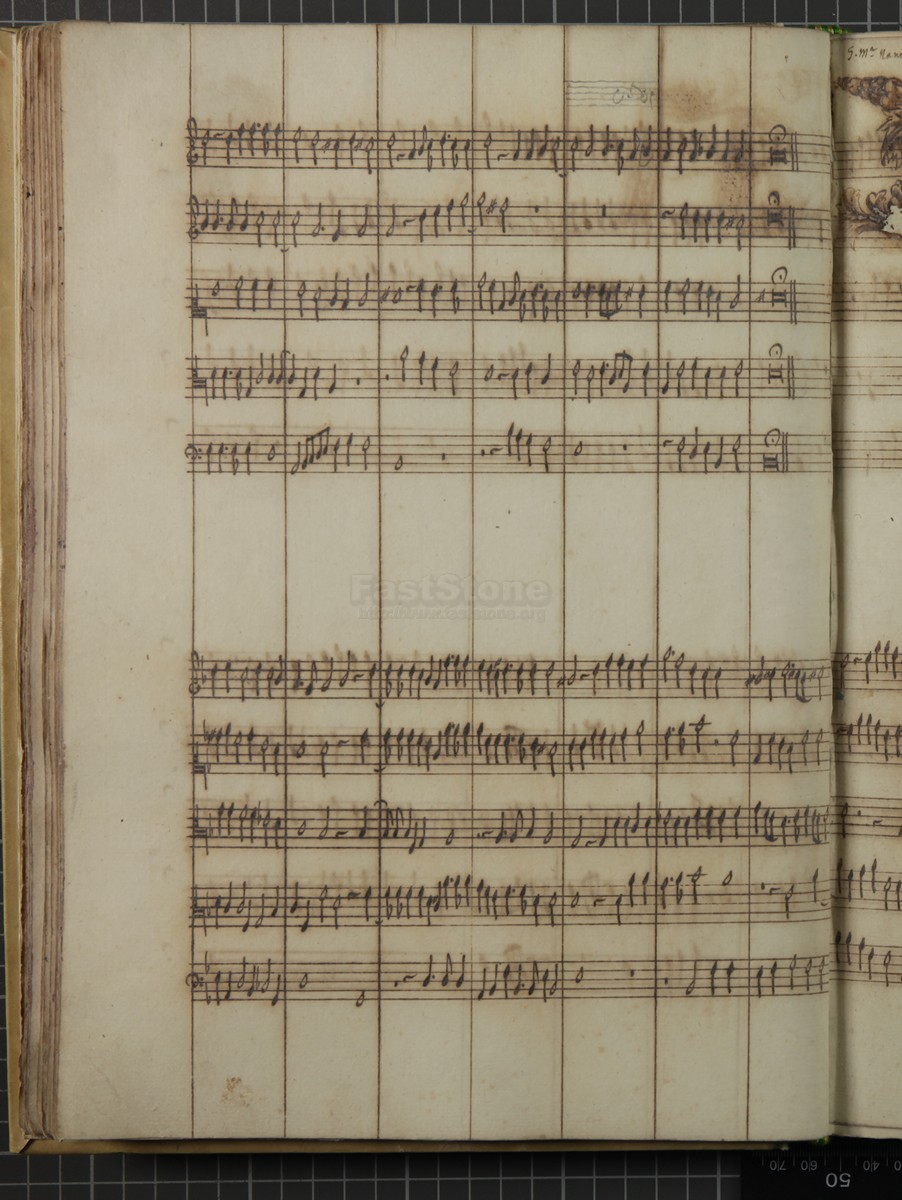 G. Mª
FastStone
http://www.faststone.org
70 60 50 40